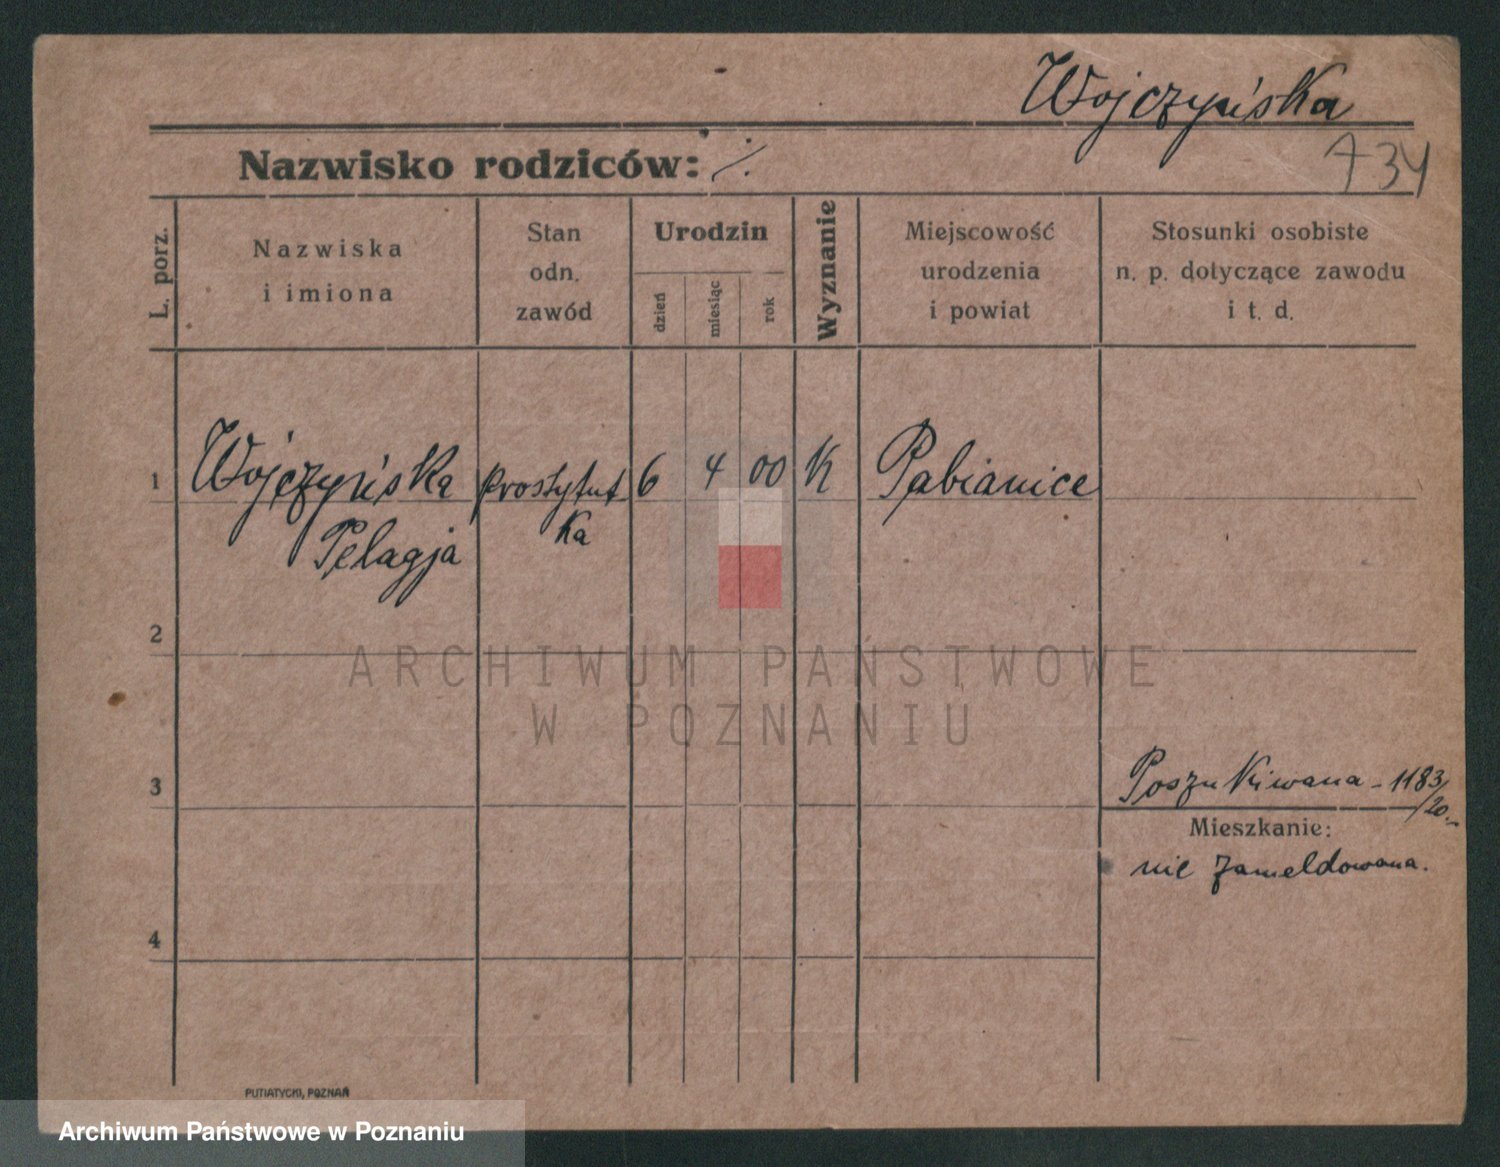 Wojczyńska
734
Nazwisko rodziców: ./.
L. porz.
Nazwiska
i imiona
Stan
odn.
zawód
Urodzin
dzień
miesiąc
rok
Wyznanie
Miejscowość
urodzenia
i powiat
Stosunki osobiste
n. p. dotyczące zawodu
i t. d.
1 Wojczyńska prostytut 6 4 00 K Pabianice
Pelagja ka
2
3
Poszukiwana - 1183
/20.-
Mieszkanie:
nie zameldowana.
4
PUTIATYCKI, POZNAŃ
ARCHIWUM PAŃSTWOWE
W POZNANIU
Archiwum Państwowe w Poznaniu